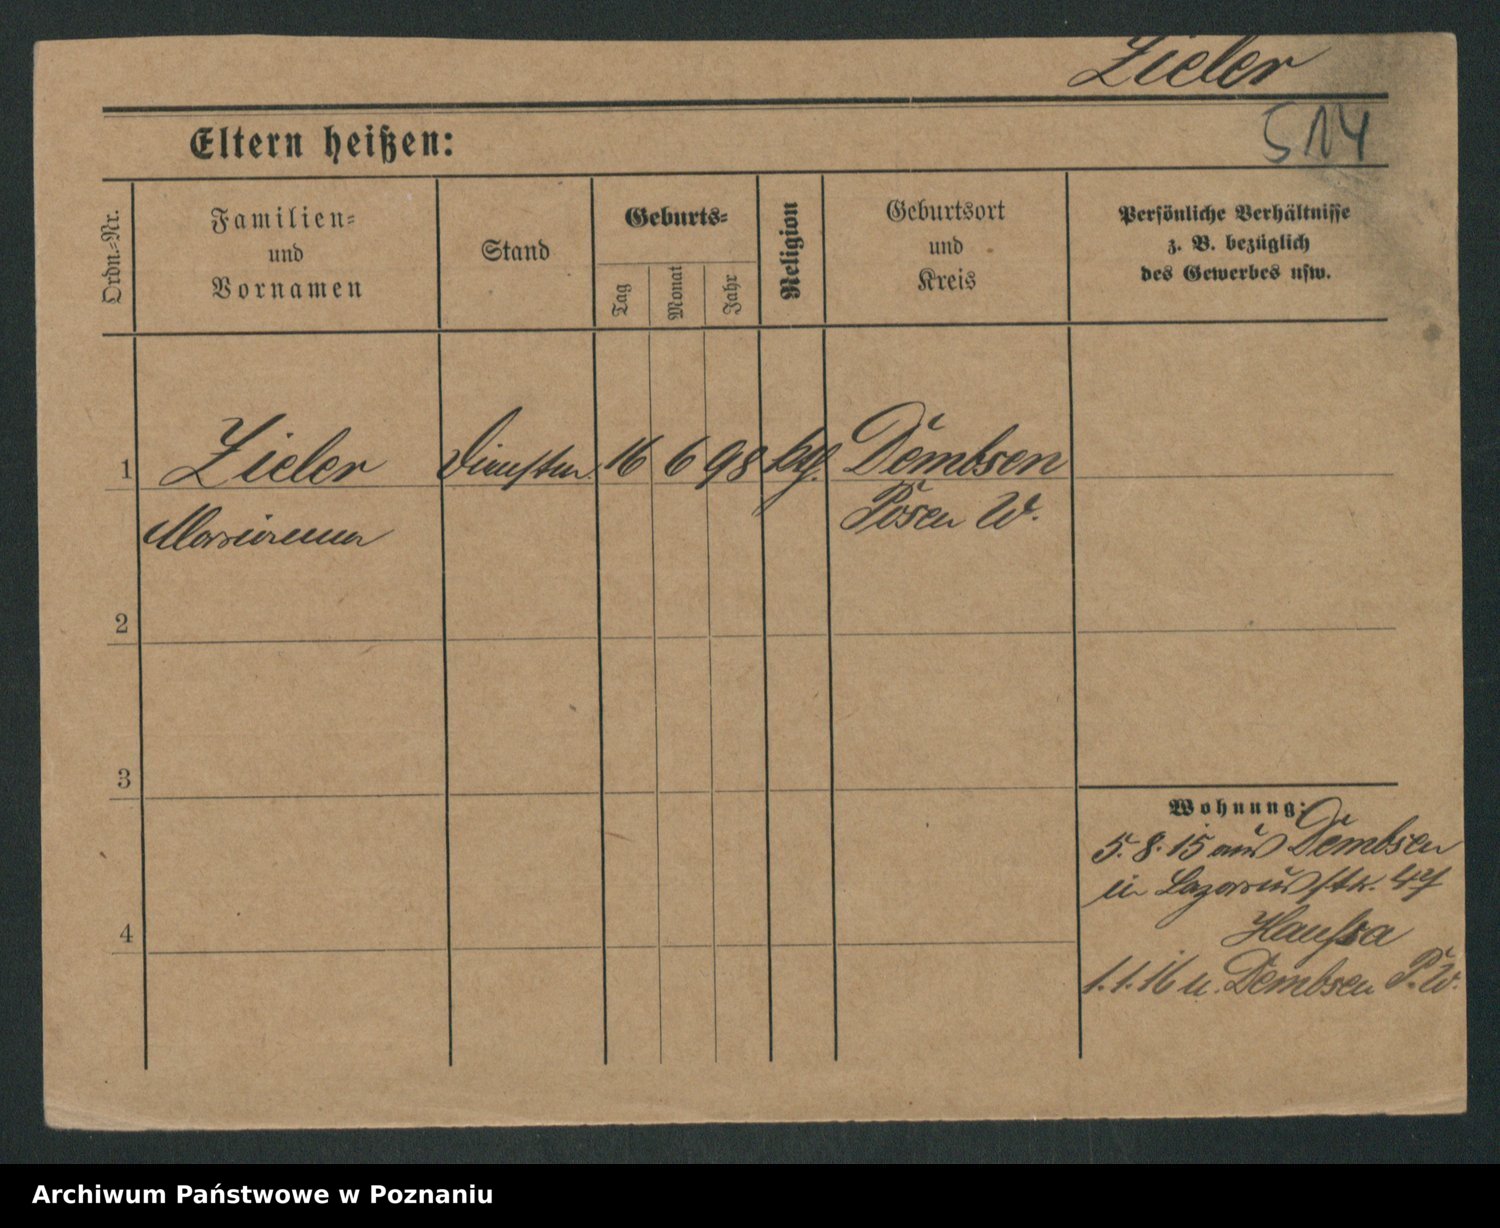 Zieler
514
Eltern heißen:
Ordn.-Nr.
Familien-
und
Vornamen
Stand
Geburts-
Tag
Monat
Jahr
Religion
Geburtsort
und
Kreis
Persönliche Verhältnisse
z. B. bezüglich
des Gewerbes usw.
1 Zieler 16 6 98 Dembsen
Marianna Posen W.
2
3
4
Wohnung:
5.8.15 aus Dembsen
in Lazarusstr.
Hansa
1.1.16 n. Dembsen P.W.
Archiwum Państwowe w Poznaniu